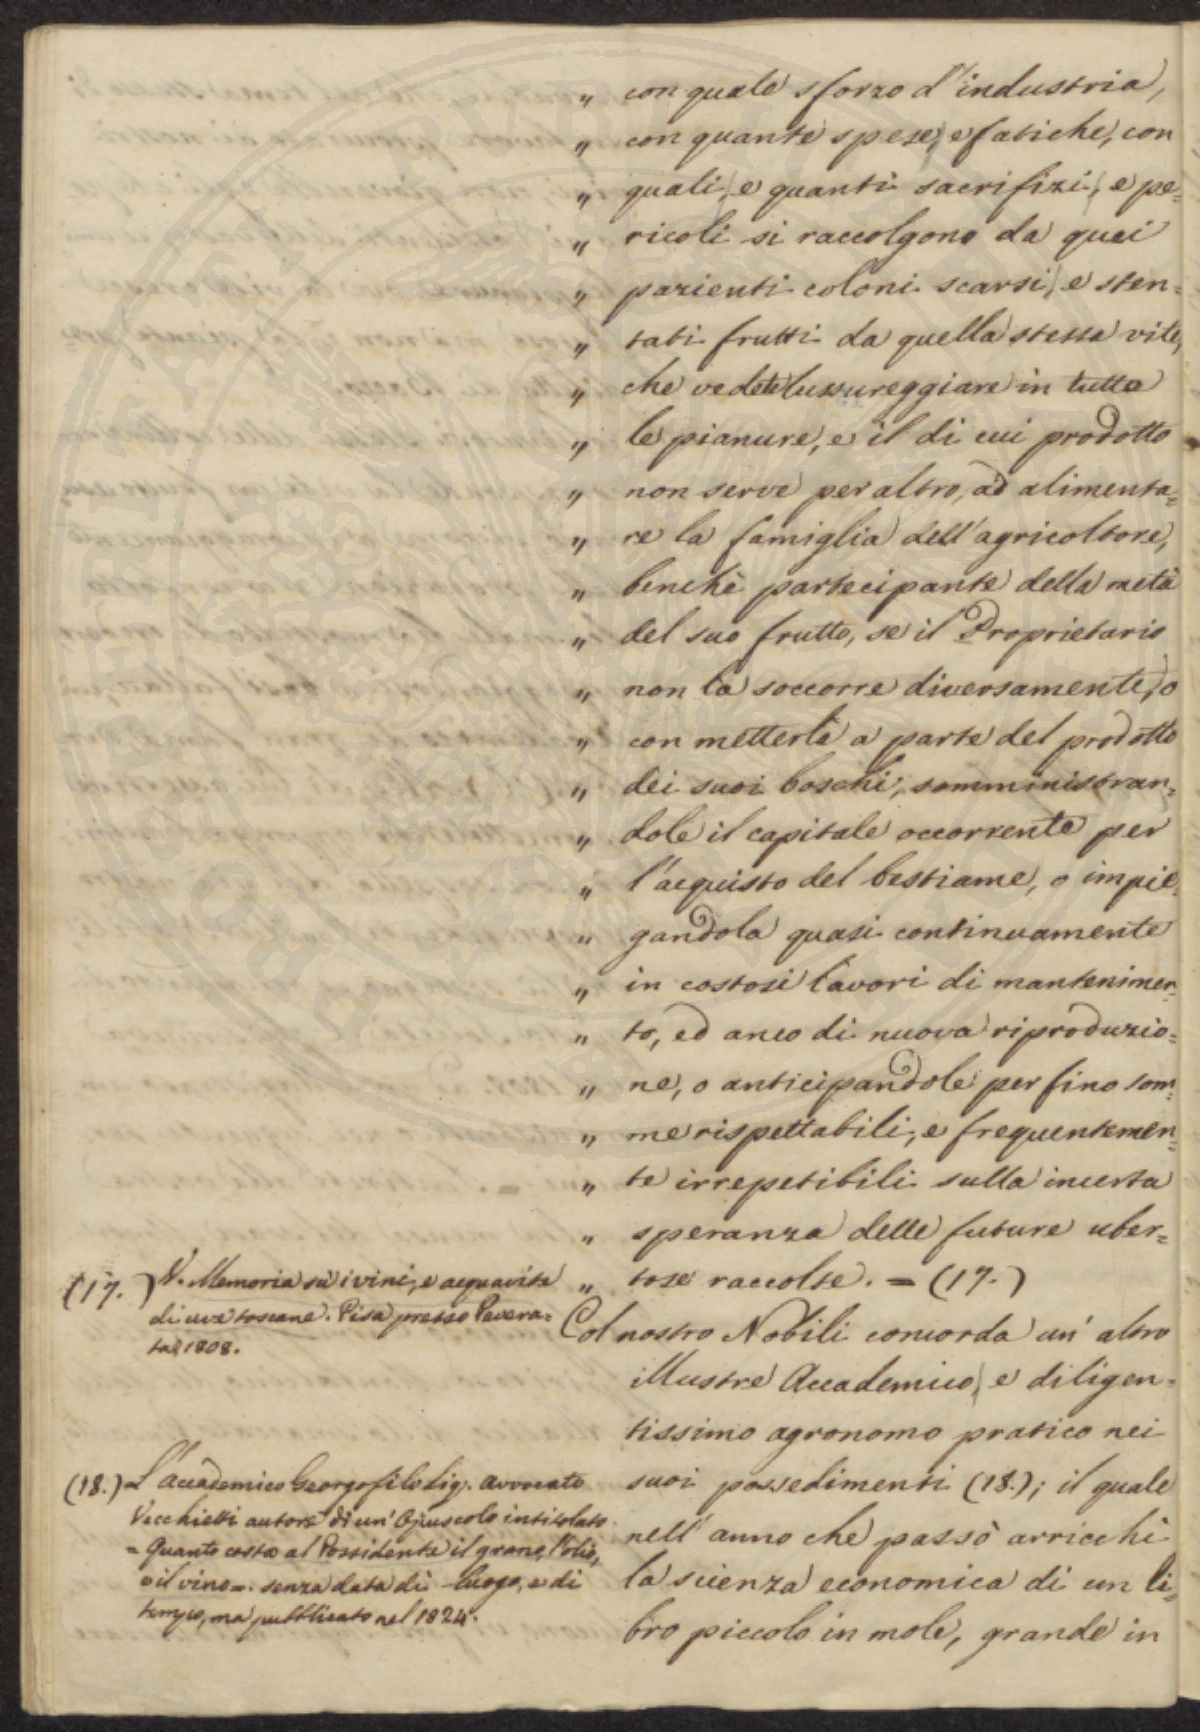 " con quale sforzo d'industria,
" con quante spese, e fatiche, con
" quali, e quanti sacrifizi, e pe=
" ricoli si raccolgono da quei
" pazienti coloni scarsi, e sten=
" tati frutti da quella stessa vite,
" che vedete lussureggiare in tutte
" le pianure, e il di cui prodotto
" non serve per altro, ad alimenta=
" re la famiglia dell'agricoltore,
" benchè partecipante della metà
" del suo frutto, se il Proprietario
" non la soccorre diversamente, o
" con metterla a parte del prodotto
" dei suoi boschi, somministran=
" dole il capitale occorrente per
" l'acquisto del bestiame, o impie=
" gandola quasi continuamente
" in costosi lavori di mantenimen=
" to, ed anco di nuova riproduzio=
" ne, o anticipandole per fino som=
" me rispettabili, e frequentemen=
" te irrepetibili sulla incerta
" speranza delle future uber=
" tose raccolte. = (17.)
Col nostro Nobili concorda un'altro
illustre Accademico, e diligen=
tissimo agronomo pratico nei
suoi possedimenti (18.); il quale
nell'anno che passò arricchì
la scienza economica di un li=
bro piccolo in mole, grande in
(17.) V. Memoria su i vini, e acquavite
di uve toscane. Pisa presso Pevera=
ta, 1808.
(18.) L'accademico Georgofilo Sig. avvocato
Vecchietti autore di un'Opuscolo intitolato
= Quanto costa al Possidente il grano, l'olio,
e il vino =. senza data di luogo, e di
tempo, ma pubblicato nel 1824.